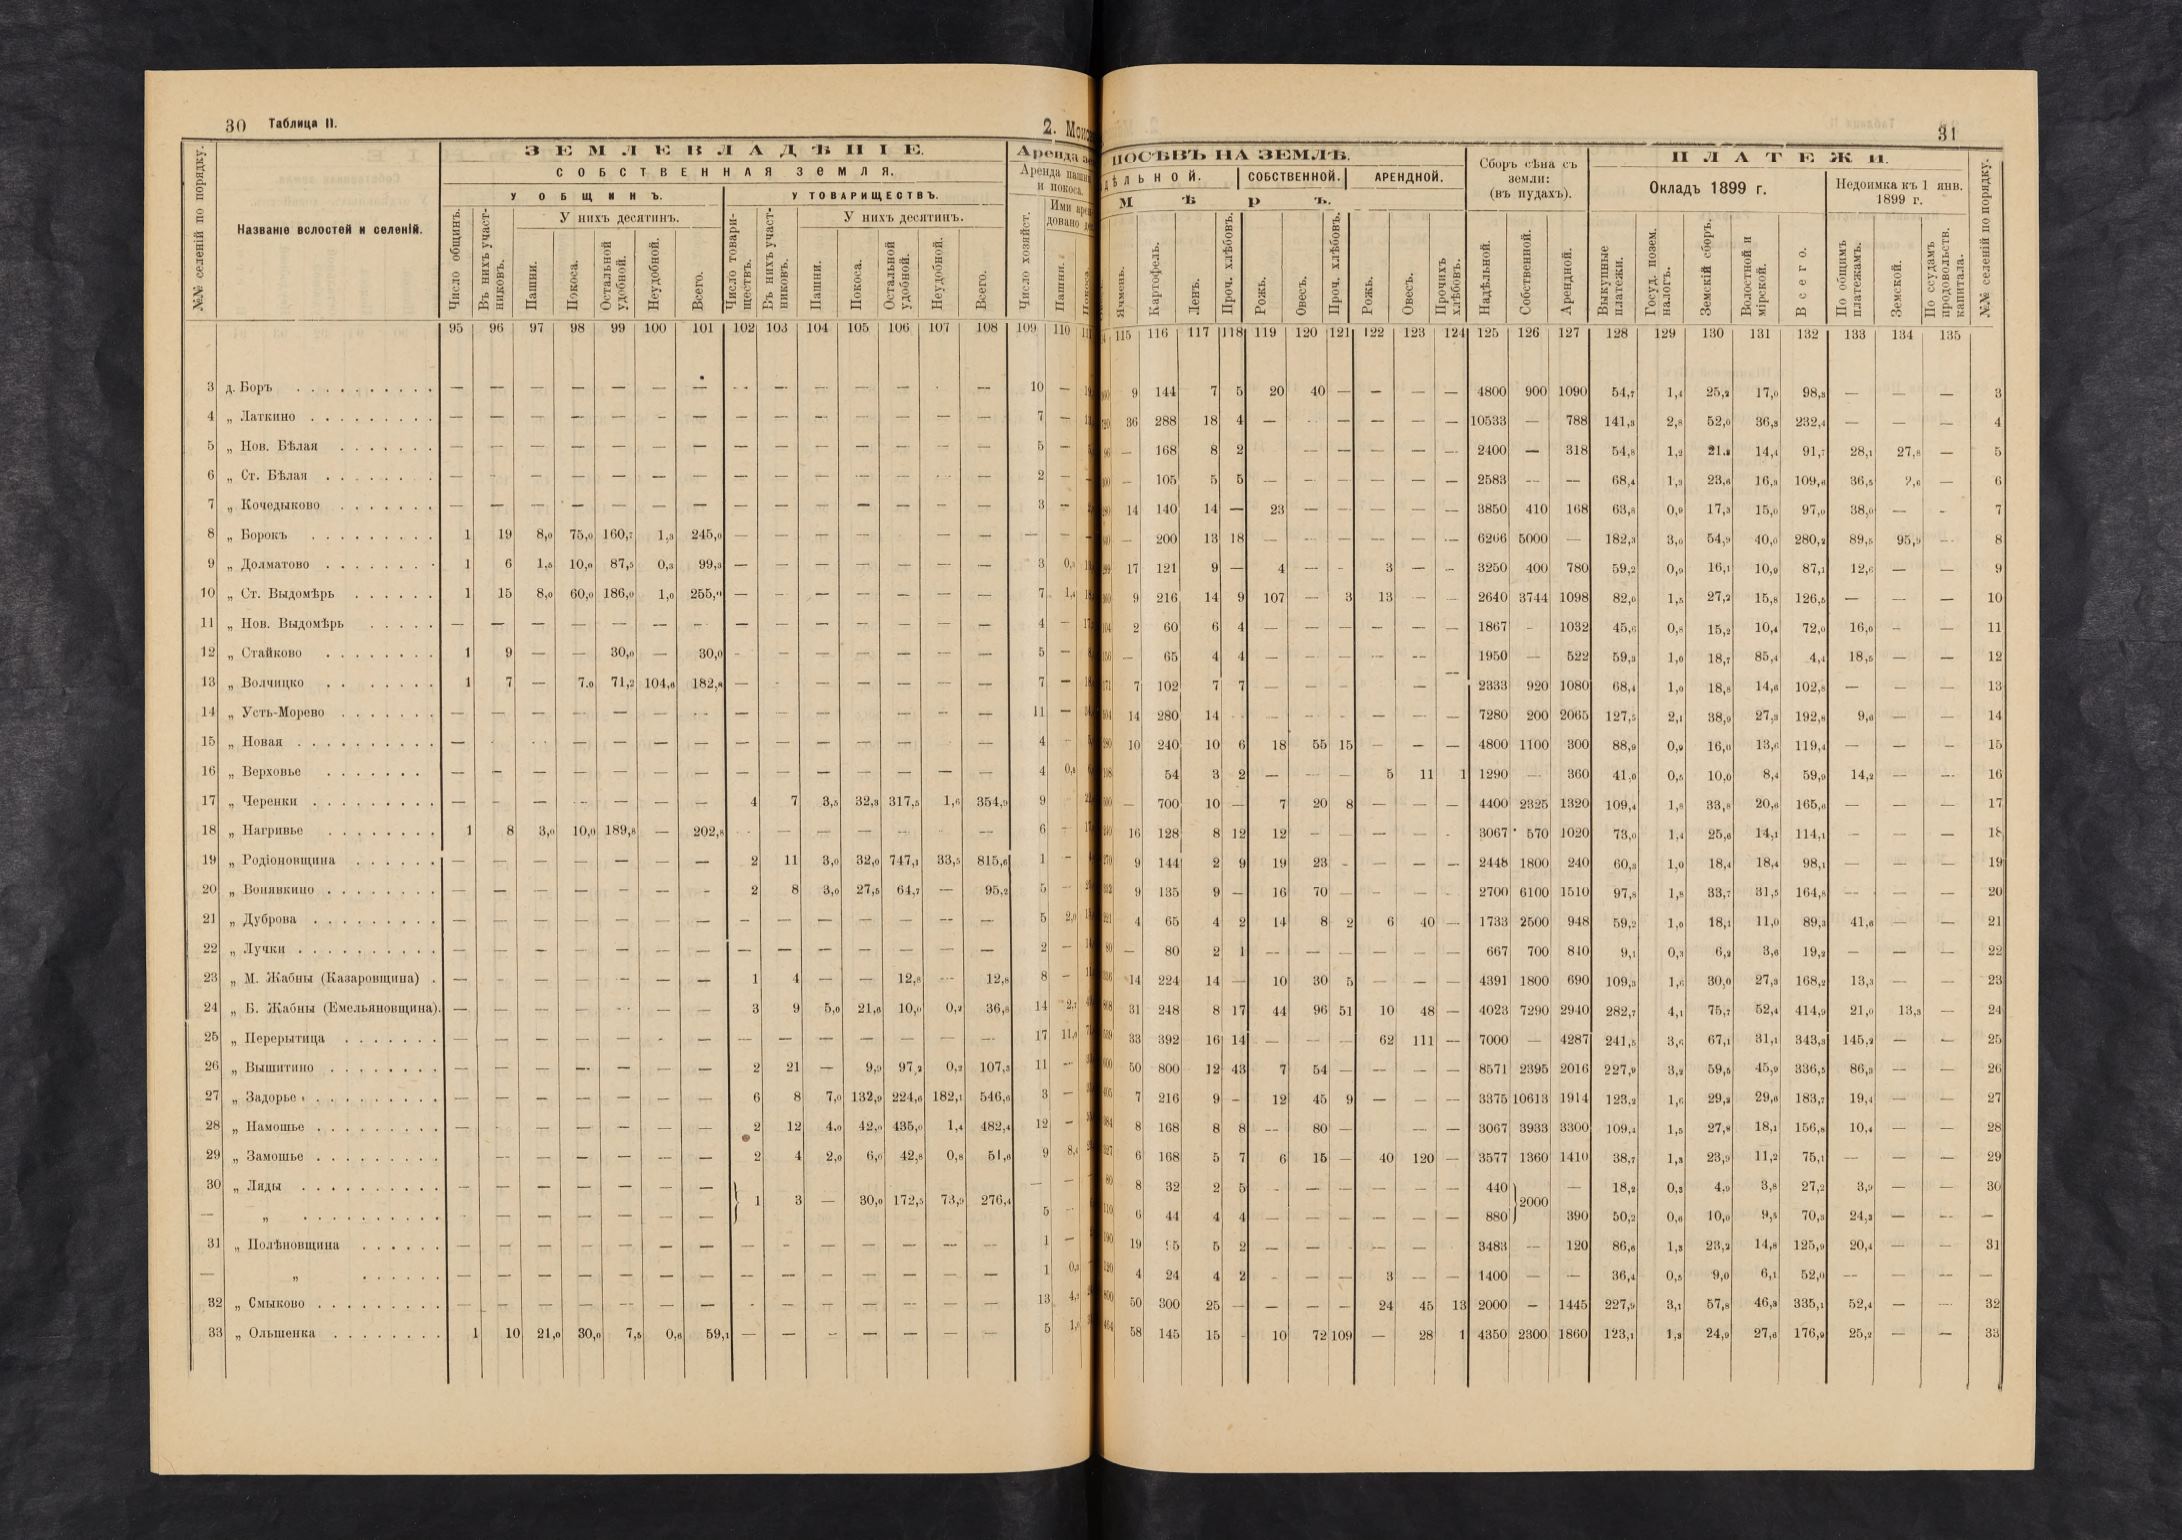 30 Таблица II.
2. Монс
31
№№ селеній по порядку.
Названіе волостей и селеній.
ЗЕМЛЕВЛАДѢНІЕ.
СОБСТВЕННАЯ ЗЕМЛЯ.
У ОБЩИНЪ. У ТОВАРИЩЕСТВЪ.
У нихъ десятинъ. У нихъ десятинъ.
Число общинъ. Въ нихъ участниковъ. Пашни. Покоса. Остальной удобной. Неудобной. Всего. Число товариществъ. Въ нихъ участниковъ. Пашни. Покоса. Остальной удобной. Неудобной. Всего.
Аренда
Аренда пашни и покоса.
Число хозяйст. Пашни.
ПОСѢВЪ НА ЗЕМЛѢ.
СОБСТВЕННОЙ. АРЕНДНОЙ.
Мѣръ.
Ячмень. Картофель. Ленъ. Проч. хлѣбовъ. Рожь. Овесъ. Проч. хлѣбовъ. Рожь. Овесъ. Прочихъ хлѣбовъ.
Сборъ сѣна съ земли: (въ пудахъ).
Надѣльной. Собственной. Арендной.
ПЛАТЕЖИ.
Окладъ 1899 г. Недоимка къ 1 янв. 1899 г.
Выкупные платежи. Госуд. позем. налогъ. Земскій сборъ. Волостной и мірской. Всего. По общимъ платежамъ. Земской. По ссудамъ продовольств. капитала.
№№ селеній по порядку.
95 96 97 98 99 100 101 102 103 104 105 106 107 108 109 110 115 116 117 118 119 120 121 122 123 124 125 126 127 128 129 130 131 132 133 134 135
3 д. Боръ — — — — — — — — — — — — — 10 — 9 144 7 5 20 40 — — — — 4800 900 1090 54,7 1,4 25,2 17,0 98,3 — — — 3
4 „ Латкино — — — — — — — — — — — — — — 7 — 36 288 18 4 — — — — — — 10533 — 788 141,3 2,8 52,0 36,3 232,4 — — — 4
5 „ Нов. Бѣлая — — — — — — — — — — — — — — 5 — — 168 8 2 — — — — — 2400 — 318 54,8 1,2 21,2 14,4 91,7 28,1 27,8 — 5
6 „ Ст. Бѣлая — — — — — — — — — — — — — — 2 — — 105 5 5 — — — — — — 2583 — — 68,4 1,3 23,6 16,3 109,6 36,5 2,6 — 6
7 „ Кочедыково — — — — — — — — — — — — — — 3 — 14 140 14 — 23 — — — — 3850 410 168 63,8 0,9 17,3 15,0 97,0 38,0 — - 7
8 „ Борокъ 1 19 8,0 75,0 160,7 1,3 245,0 — — — — — — — — — — 200 13 18 — — — — — — 6266 5000 — 182,3 3,0 54,9 40,0 280,2 89,5 95,9 — 8
9 „ Долматово 1 6 1,5 10,0 87,5 0,3 99,3 — — — — — — — 3 17 121 9 — 4 — - 3 — - 3250 400 780 59,2 0,9 16,1 10,9 87,1 12,6 — — 9
10 „ Ст. Выдомѣрь 1 15 8,0 60,0 186,0 1,0 255,0 — — — — — — — 7 1,4 9 216 14 9 107 — 3 13 — - 2640 3744 1098 82,0 1,5 27,2 15,8 126,5 — — — 10
11 „ Нов. Выдомѣрь — — — — — — - — — — — — — — 4 — 2 60 6 4 — — — — — — 1867 - 1032 45,6 0,8 15,2 10,4 72,0 16,0 - — 11
12 „ Стайково 1 9 — — 30,0 — 30,0 - — — — — — — 5 — — 65 4 4 — — — — — 1950 — 522 59,3 1,0 18,7 85,4 4,4 18,5 — — 12
13 „ Волчицко 1 7 — 7,0 71,2 104,6 182,8 — - — — — — — 7 — 7 102 7 7 — — — — — 2333 920 1080 68,4 1,0 18,8 14,6 102,8 — — — 13
14 „ Усть-Морево — — — — — — — — — — — — — — 11 — 14 280 14 - — — — — — — 7280 200 2065 127,5 2,1 38,9 27,3 192,8 9,0 — — 14
15 „ Новая — — — — — — — — — — — — — 4 — 10 240 10 6 18 55 15 — — — 4800 1100 300 88,9 0,9 16,0 13,6 119,4 — — — 15
16 „ Верховье — - — — — — — — — — — — — — 4 54 3 2 — — — 5 11 1 1290 — 360 41,0 0,5 10,0 8,4 59,9 14,2 — — 16
17 „ Черенки — - — — — — 4 7 3,5 32,3 317,5 1,6 354,9 9 — 700 10 — 7 20 8 — — — 4400 2325 1320 109,4 1,8 33,8 20,6 165,6 — — — 17
18 „ Нагривье 1 8 3,0 10,0 189,8 — 202,8 - — — — — — — 6 — 16 128 8 12 12 - — — — - 3067 570 1020 73,0 1,4 25,6 14,1 114,1 — — — 18
19 „ Родіоновщина — — — — — — — 2 11 3,0 32,0 747,1 33,5 815,6 1 — 9 144 2 9 19 23 - — — — 2448 1800 240 60,3 1,0 18,4 18,4 98,1 — — — 19
20 „ Вонявкино — — — — — — - 2 8 3,0 27,5 64,7 — 95,2 5 — 9 135 9 — 16 70 — — - - 2700 6100 1510 97,8 1,8 33,7 31,5 164,8 — — — 20
21 „ Дуброва — — — — — — — — — — — — — — 5 2,0 4 65 4 2 14 8 2 6 40 — 1733 2500 948 59,2 1,0 18,1 11,0 89,3 41,6 — — 21
22 „ Лучки — — — — — — — — — — — — — — 2 — — 80 2 1 — — — — — — 667 700 840 9,1 0,3 6,2 3,6 19,2 — — — 22
23 „ М. Жабны (Казаровщина) — — — — — — — 1 4 — — 12,8 — 12,8 8 — 14 224 14 — 10 30 5 — — — 4391 1800 690 109,3 1,6 30,0 27,3 168,2 13,3 — — 23
24 „ Б. Жабны (Емельяновщина). — — — — — — 3 9 5,0 21,6 10,0 0,2 36,8 14 2,7 31 248 8 17 44 96 51 10 48 — 4023 7290 2940 282,7 4,1 75,7 52,4 414,9 21,0 13,3 — 24
25 „ Перерытица — — — — - — — — — — — — — — 17 33 392 16 14 — — — 62 111 — 7000 — 4287 241,5 3,6 67,1 31,1 343,3 145,2 — — 25
26 „ Вышитино — — — — — — — 2 21 — 9,9 97,2 0,2 107,3 11 — 50 800 12 43 7 54 — — — — 8571 2395 2016 227,9 3,2 59,5 45,9 336,5 86,3 — — 26
27 „ Задорье — — — — — — — 6 8 7,0 132,9 224,6 182,1 546,6 3 — 7 216 9 - 12 45 9 — — — 3375 10613 1914 123,2 1,6 29,2 29,6 183,7 19,4 — — 27
28 „ Намошье — — — — — — 2 12 4,0 42,0 435,0 1,4 482,4 12 — 8 168 8 8 — 80 — — — 3067 3933 3300 109,4 1,5 27,8 18,1 156,8 10,4 — — 28
29 „ Замошье — — — — — — 2 4 2,0 6,0 42,8 0,8 51,6 9 6 168 5 7 6 15 — 40 120 — 3577 1360 1410 38,7 1,3 23,9 11,2 75,1 — — — 29
30 „ Ляды — — — — — — — 1 3 — 30,0 172,5 73,9 276,4 — — 8 32 2 5 - — — — — — 440 2000 — 18,2 0,3 4,9 3,8 27,2 3,9 — — 30
— „ — — — — — — — 5 6 44 4 4 — — — — — — 880 390 50,2 0,6 10,0 9,5 70,3 24,3 — — —
31 „ Полѣновщина — — — — — — — — — — — — — — 1 — 19 5 2 — — — — — — 3483 — 120 86,6 1,3 23,2 14,8 125,9 20,4 — — 31
— „ — — — — — — — — — — — — — — 1 4 24 4 2 - — — 3 — — 1400 — — 36,4 0,5 9,0 6,1 52,0 — — — —
32 „ Смыково — — — — — — — - — — — — — — 13 50 300 25 — — — — 24 45 13 2000 — 1445 227,9 3,1 57,8 46,3 335,1 52,4 — — 32
33 „ Ольшенка 1 10 21,0 30,0 7,5 0,6 59,1 — — — — — — — 5 58 145 15 - 10 72 109 — 28 1 4350 2300 1860 123,1 1,3 24,9 27,6 176,9 25,2 — — 33